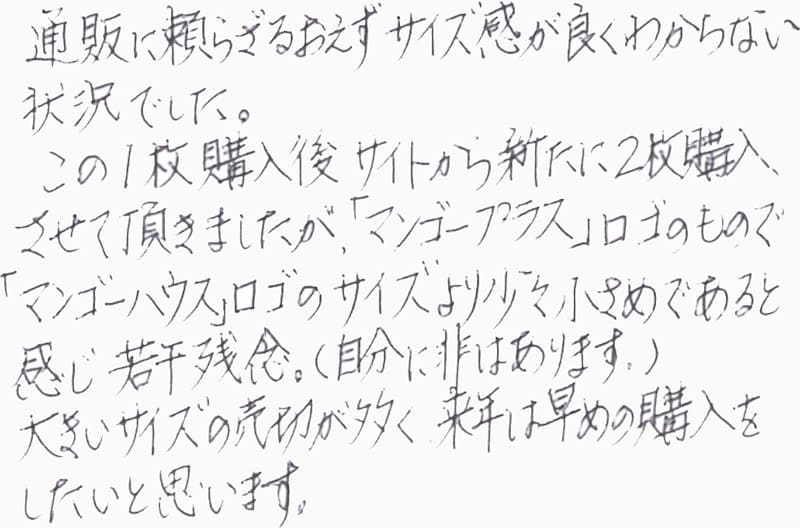 通販に頼らざるおえずサイズ感が良くわからない
状況でした。
この1枚購入後サイトから新たに2枚購入、
させて頂きましたが、「マンゴープラス」ロゴのもので
「マンゴーハウス」ロゴのサイズより少々小さめであると
感じ若干残念。(自分に非はあります。)
大きいサイズの売切が多く来年は早めの購入を
したいと思います。